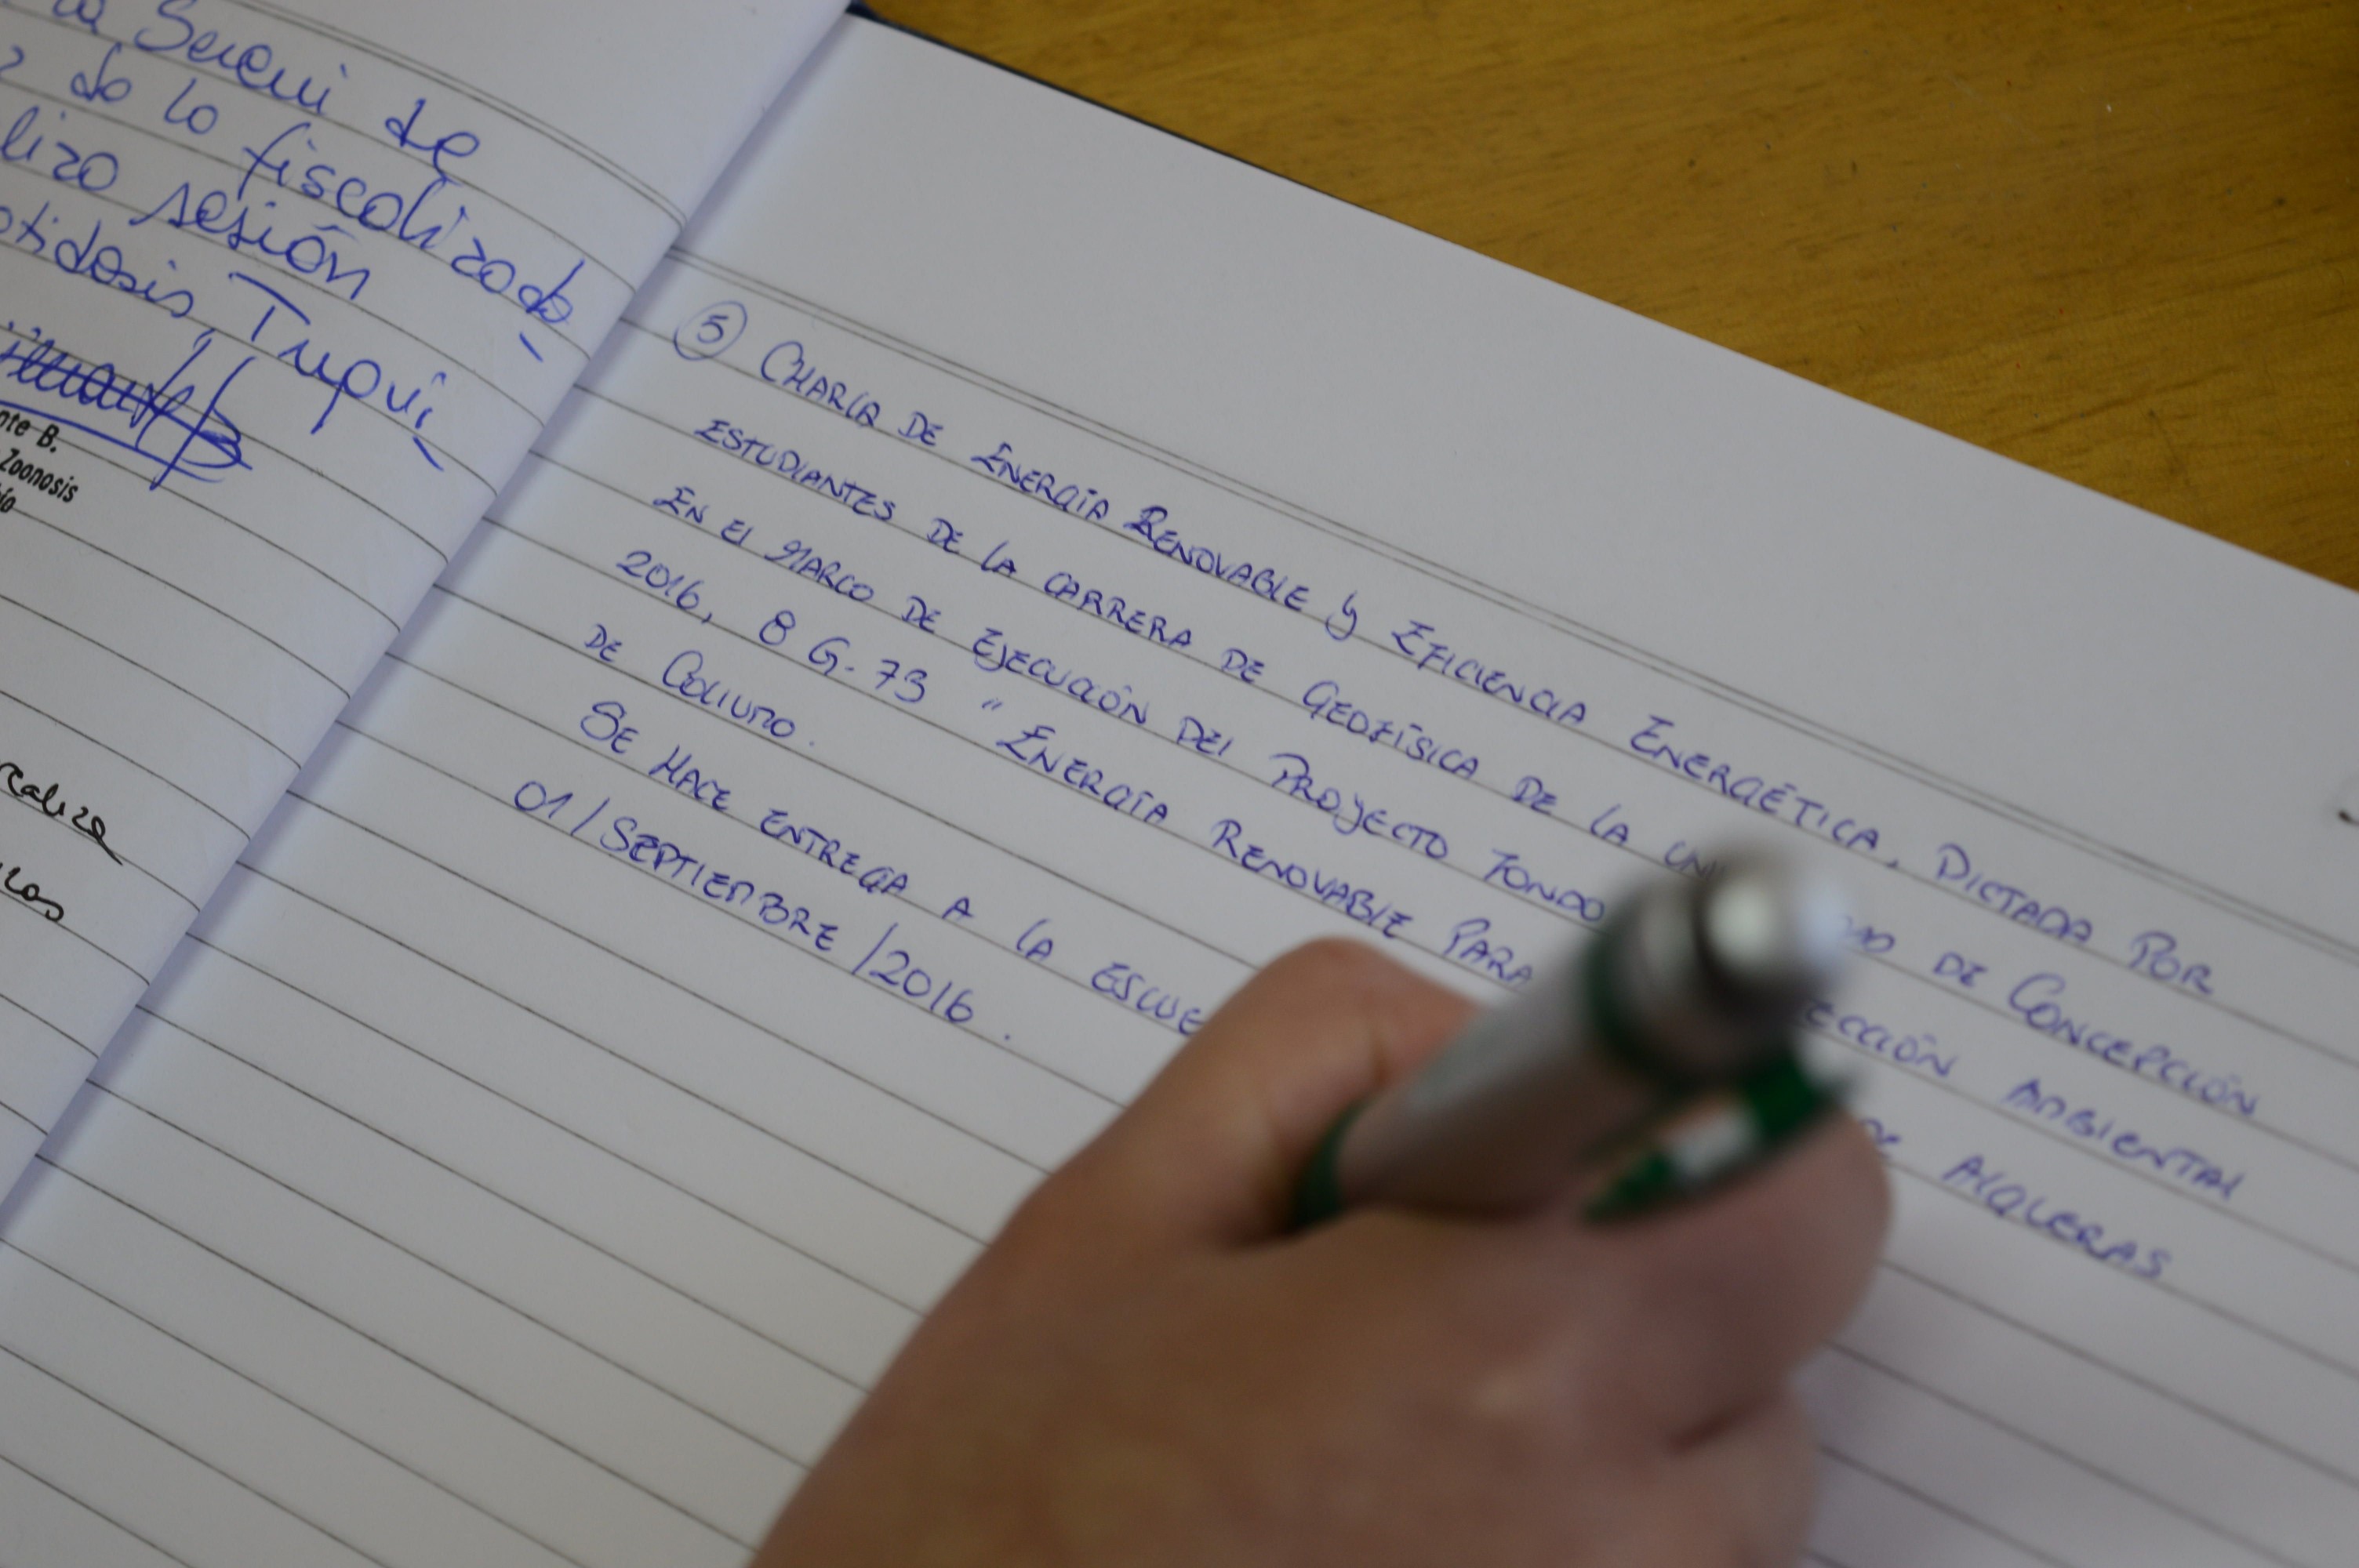 Seremi de
do lo fiscolizado
sesión
Tupui
nte B.
Zoonosis
realiza
5 CHARLA DE ENERGÍA RENOVABLE Y EFICIENCIA ENERGÉTICA, DICTADA POR
ESTUDIANTES DE LA CARRERA DE GEOFÍSICA DE LA DE CONCEPCIÓN
EN EL MARCO DE EJECUCIÓN DEL PROYECTO FONDO ECCIÓN AMBIENTAL
2016, 8 G-73 " ENERGÍA RENOVABLE PARA DE ALGUERAS
DE COLIUMO.
SE HACE ENTREGA A LA ESCUE
01/SEPTIEMBRE/2016.